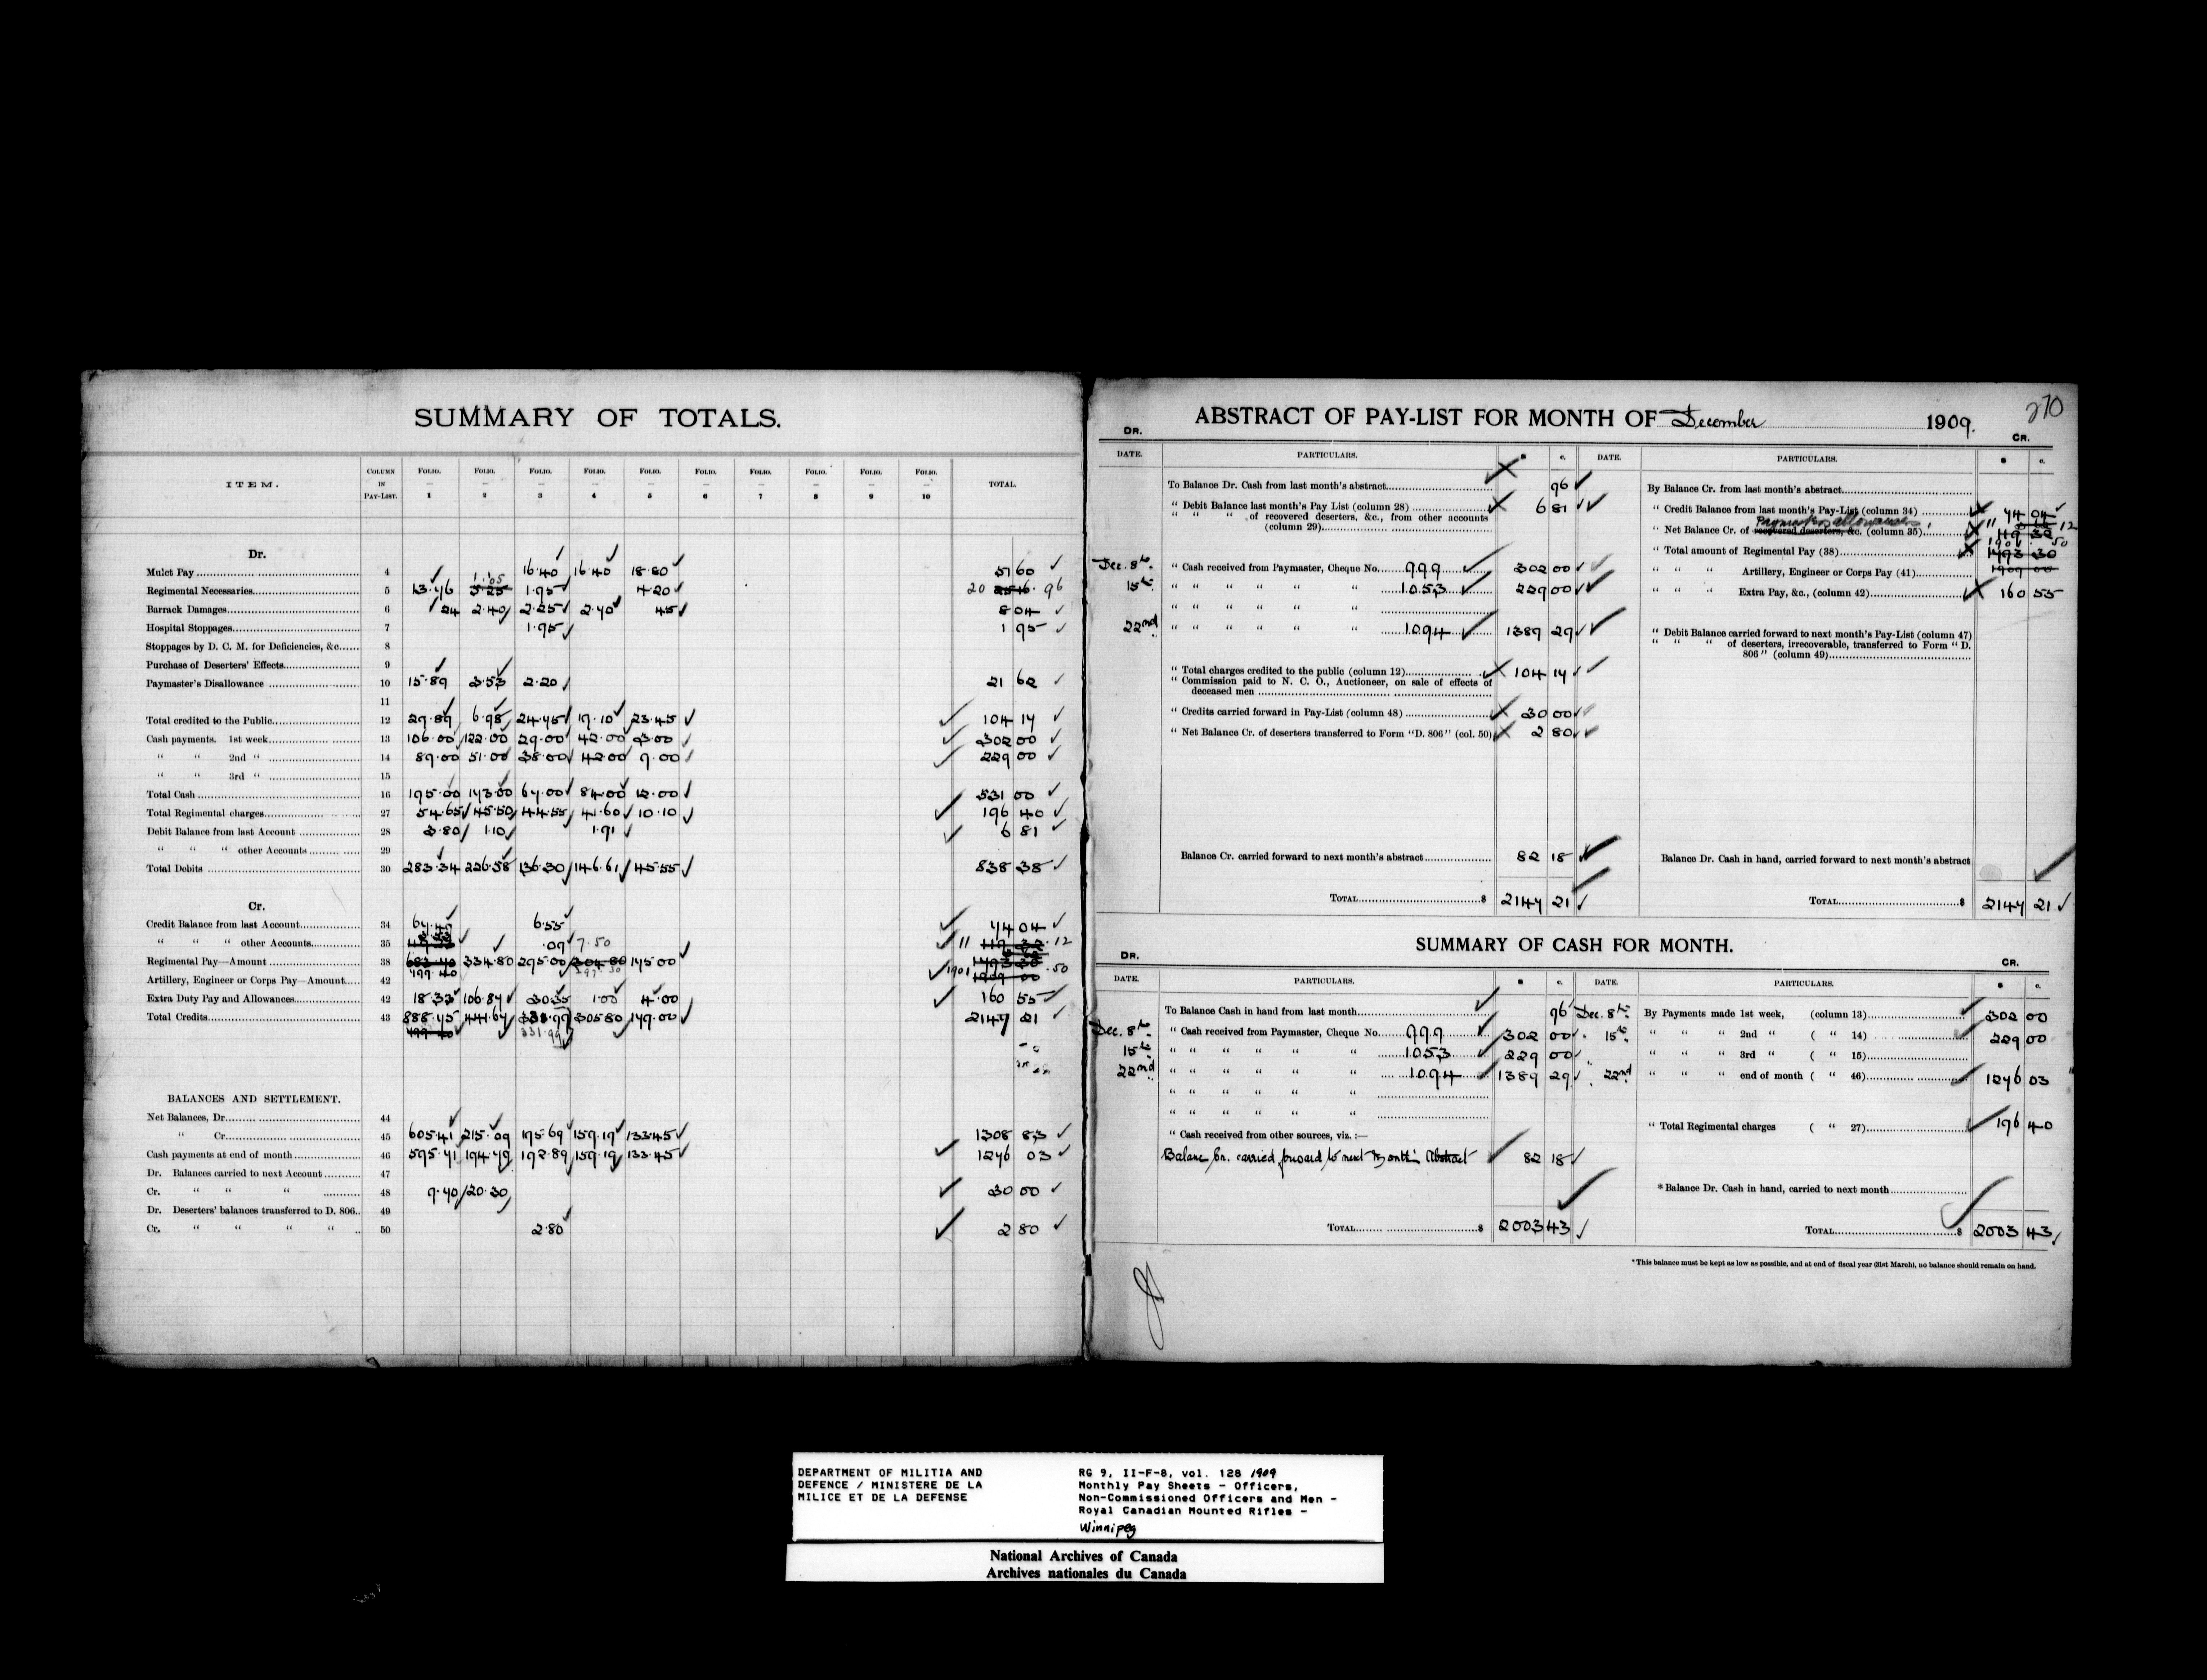 SUMMARY OF TOTALS.
ITEM. COLUMN IN PAY-LIST. FOLIO. — 1 FOLIO. — 2 FOLIO. — 3 FOLIO. — 4 FOLIO. — 5 FOLIO. — 6 FOLIO. — 7 FOLIO. — 8 FOLIO. — 9 FOLIO. — 10 TOTAL.
Dr.
Mulct Pay 4 16.40 16.40 18.80 51 60
Regimental Necessaries 5 13.76 1.05 1.95 4.20 20 96
Barrack Damages 6 24 2.40 2.25 2.70 45 8 04
Hospital Stoppages 7 1.95 1 95
Stoppages by D. C. M. for Deficiencies, &c. 8
Purchase of Deserters' Effects 9
Paymaster's Disallowance 10 15.89 3.53 2.20 21 62
11
Total credited to the Public 12 29.89 6.98 24.75 19.10 23.45 104 17
Cash payments. 1st week 13 106.00 122.00 29.00 42.00 3.00 302 00
" " 2nd " 14 89.00 51.00 38.00 42.00 9.00 229 00
" " 3rd " 15
Total Cash 16 195.00 173.00 67.00 84.00 12.00 531 00
Total Regimental charges 27 54.65 45.50 44.55 41.60 10.10 196 40
Debit Balance from last Account 28 3.80 1.10 1.91 6 81
" " " other Accounts 29
Total Debits 30 283.34 226.58 136.30 146.61 45.55 838 38
Cr.
Credit Balance from last Account 34 67.49 6.55 74 04
" " " other Accounts 35 .09 7.50 11 12
Regimental Pay—Amount 38 799.40 334.80 295.00 297.30 175.00 1901 .50
Artillery, Engineer or Corps Pay—Amount 42
Extra Duty Pay and Allowances 42 18.33 106.87 30.35 1.00 4.00 160 55
Total Credits 43 888.75 441.67 331.99 305.80 179.00 2147 21
BALANCES AND SETTLEMENT.
Net Balances, Dr. 44
" Cr. 45 605.41 215.09 195.69 159.19 133.45 1308 83
Cash payments at end of month 46 595.71 194.79 192.89 159.19 133.45 1276 03
Dr. Balances carried to next Account 47
Cr. " " " 48 9.70 20.30 30 00
Dr. Deserters' balances transferred to D. 806 49
Cr. " " " " 50 2.80 2 80
270
ABSTRACT OF PAY-LIST FOR MONTH OF December 1909.
DR. CR.
DATE. PARTICULARS. $ c. DATE. PARTICULARS. $ c.
To Balance Dr. Cash from last month's abstract 96
" Debit Balance last month's Pay List (column 28) 6 81
" " " of recovered deserters, &c., from other accounts
(column 29)
Dec. 8th " Cash received from Paymaster, Cheque No. 999 302 00
15th " " " " " " 1053 229 00
" " " " " "
22nd " " " " " " 1094 1389 29
" Total charges credited to the public (column 12) 104 17
" Commission paid to N. C. O., Auctioneer, on sale of effects of
deceased men
" Credits carried forward in Pay-List (column 48) 30 00
" Net Balance Cr. of deserters transferred to Form "D. 806" (col. 50) 2 80
Balance Cr. carried forward to next month's abstract 82 18
TOTAL $ 2147 21
By Balance Cr. from last month's abstract
" Credit Balance from last month's Pay-List (column 34) 74 04
Paymasters allowances
" Net Balance Cr. of recovered deserters, &c. (column 35) 11 12
" Total amount of Regimental Pay (38) 1901 50
" " " Artillery, Engineer or Corps Pay (41)
" " " Extra Pay, &c., (column 42) 160 55
" Debit Balance carried forward to next month's Pay-List (column 47)
" " " of deserters, irrecoverable, transferred to Form "D.
806" (column 49)
Balance Dr. Cash in hand, carried forward to next month's abstract
TOTAL $ 2147 21
SUMMARY OF CASH FOR MONTH.
DR. CR.
DATE. PARTICULARS. $ c. DATE. PARTICULARS. $ c.
To Balance Cash in hand from last month 96
Dec. 8th " Cash received from Paymaster, Cheque No. 999 302 00
15th " " " " " " 1053 229 00
22nd " " " " " " 1094 1389 29
" " " " " "
" " " " " "
" Cash received from other sources, viz. :—
Balance Cr. carried forward to next month's Abstract 82 18
TOTAL $ 2003 43
Dec. 8th By Payments made 1st week, (column 13) 302 00
15th " " " 2nd " ( " 14) 229 00
" " " 3rd " ( " 15)
22nd " " " end of month ( " 46) 1276 03
" Total Regimental charges ( " 27) 196 40
* Balance Dr. Cash in hand, carried to next month
TOTAL $ 2003 43
* This balance must be kept as low as possible, and at end of fiscal year (31st March), no balance should remain on hand.
DEPARTMENT OF MILITIA AND
DEFENCE / MINISTERE DE LA
MILICE ET DE LA DEFENSE
RG 9, II-F-8, vol. 128 1909
Monthly Pay Sheets - Officers,
Non-Commissioned Officers and Men -
Royal Canadian Mounted Rifles -
Winnipeg
National Archives of Canada
Archives nationales du Canada